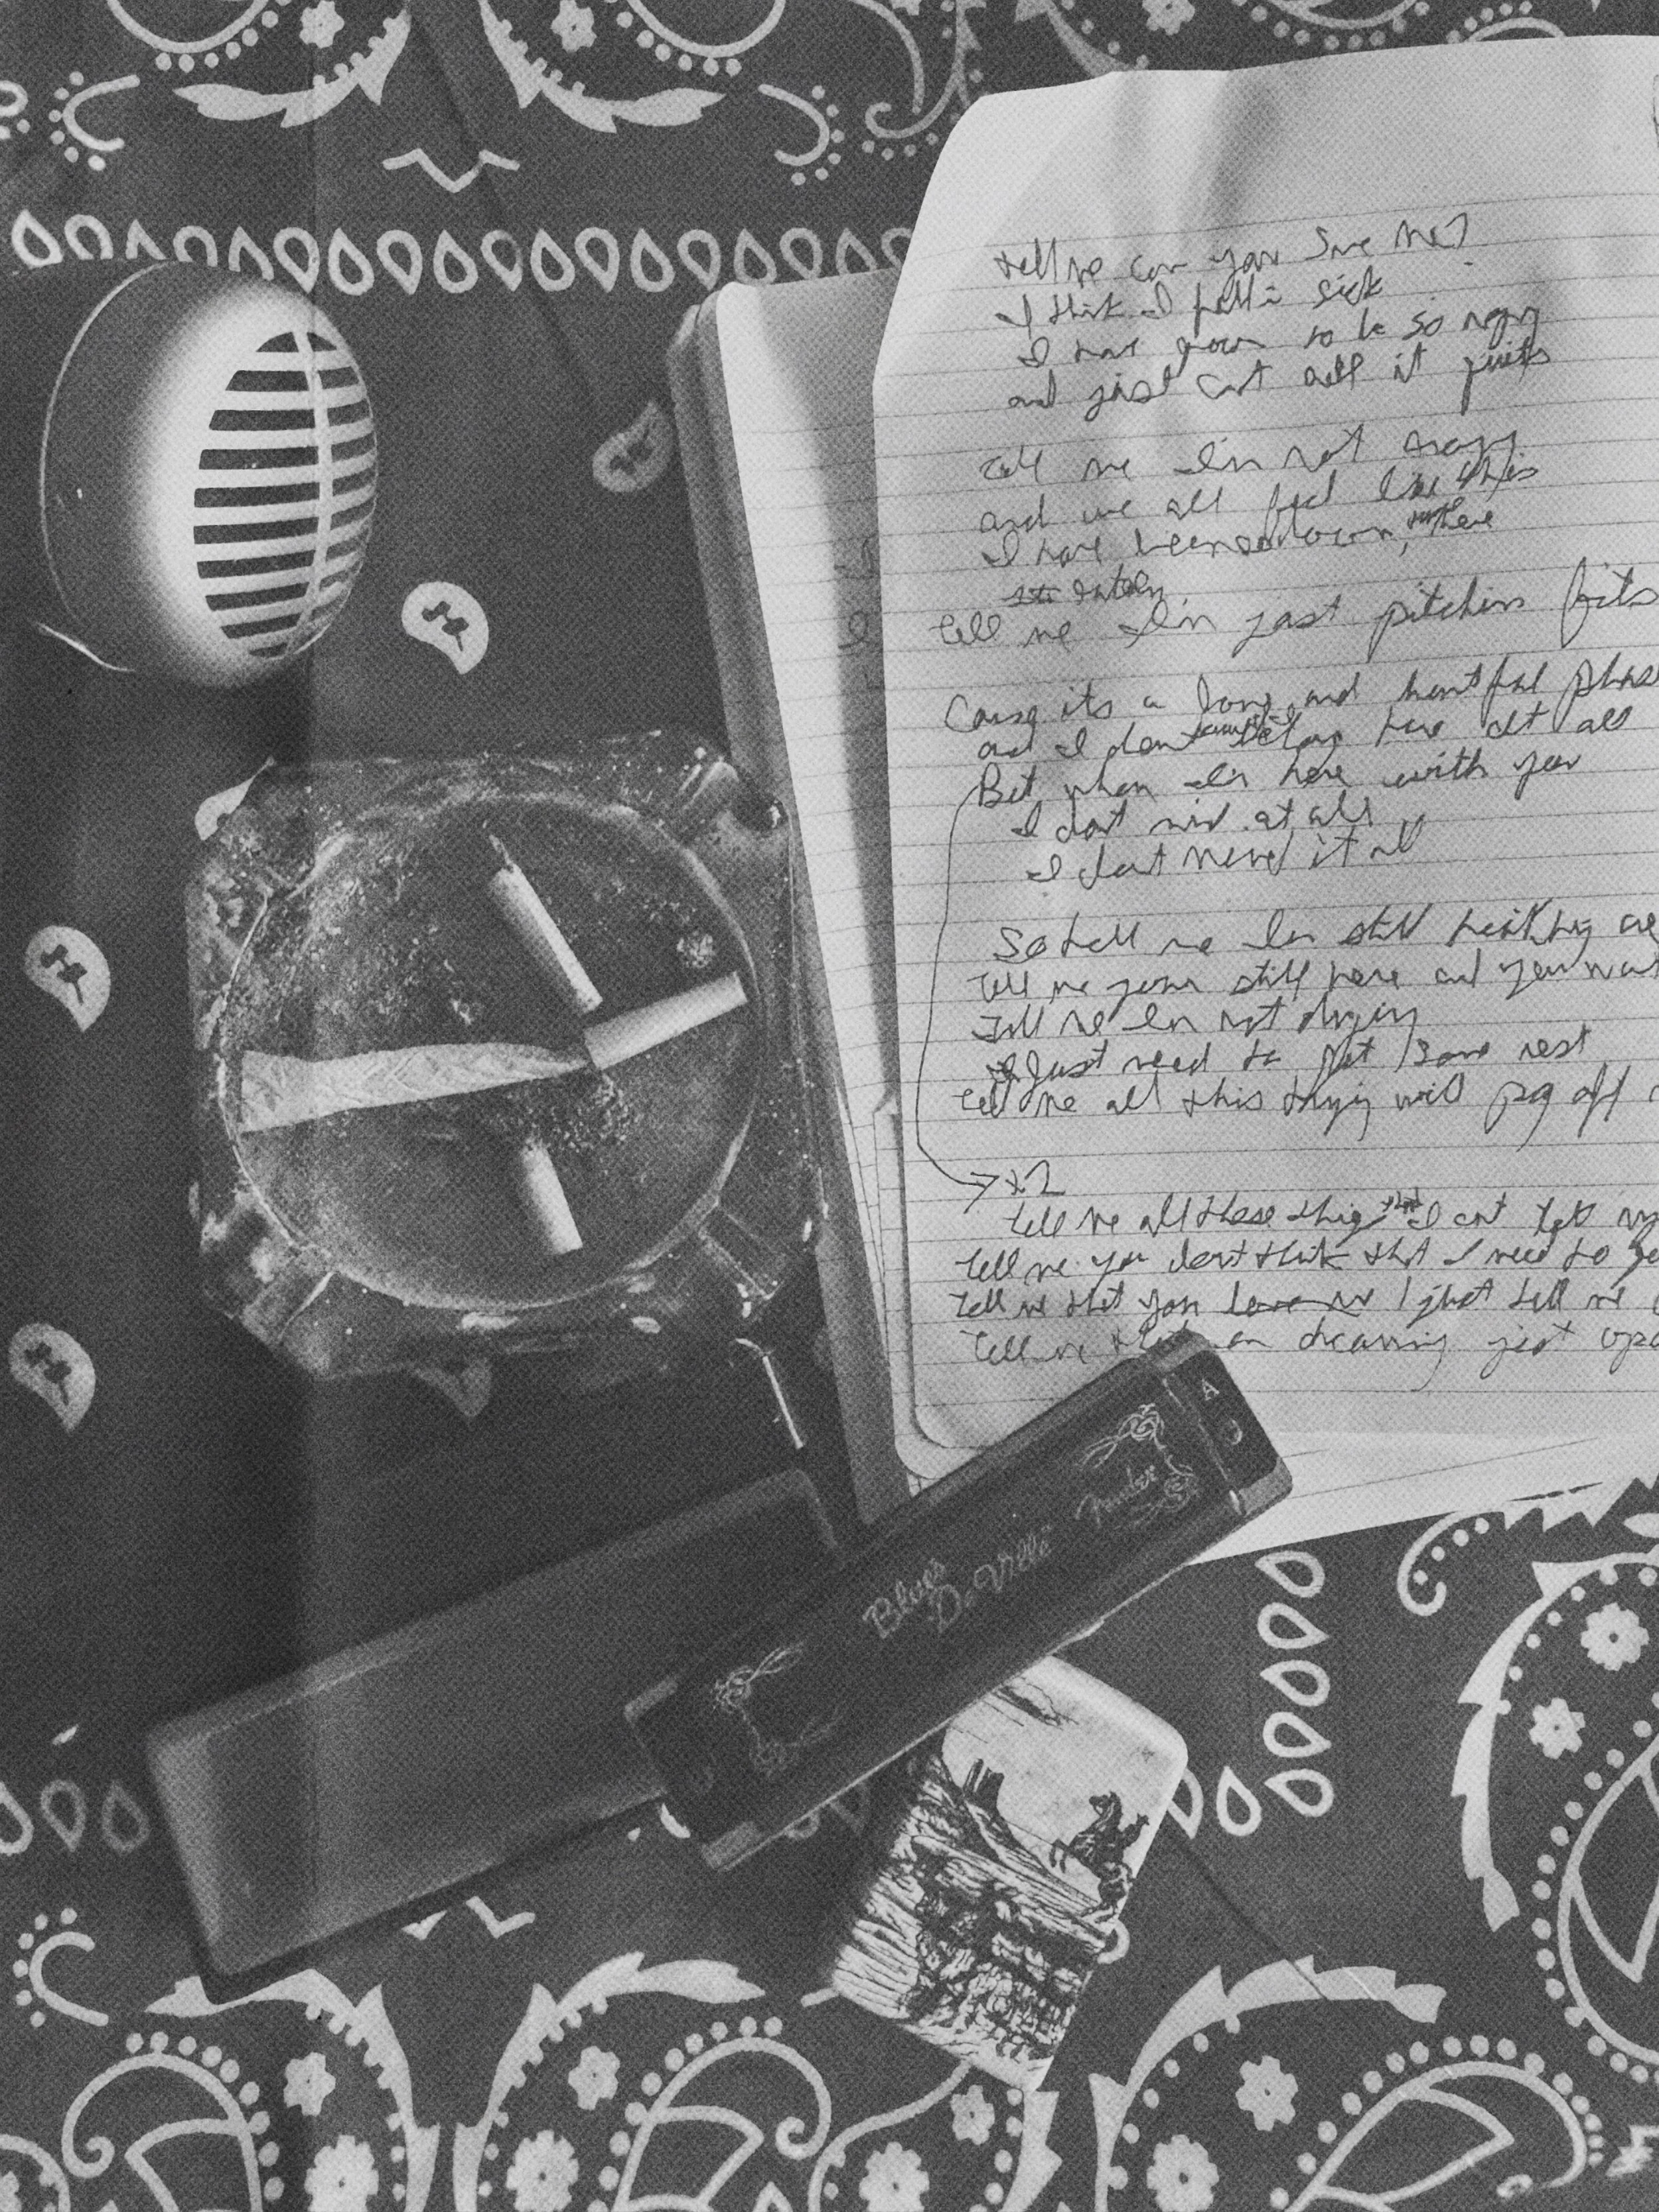 tell me can you save me?
I think I fell in sick
I have grown to be so angry
and just can't call it quits
Tell me Im not crazy
and we all feel like this
I have been so down, here
lately
Tell me Im just pitchin fits
Cause its a long and hurtful phase
and I dont belong here at all
But when Im here with you
I dont mind at all
I dont mind it all
So tell me Im still healthy
Tell me youre still here and you
Tell me Im not dying
I Just need to get some rest
Tell me all this trying will pay off
x2
tell me all these things that I cant
Tell me you dont think that I need to
Tell me that you love me just tell me
Tell me dreaming just
A
Fender
Blues
DeVille